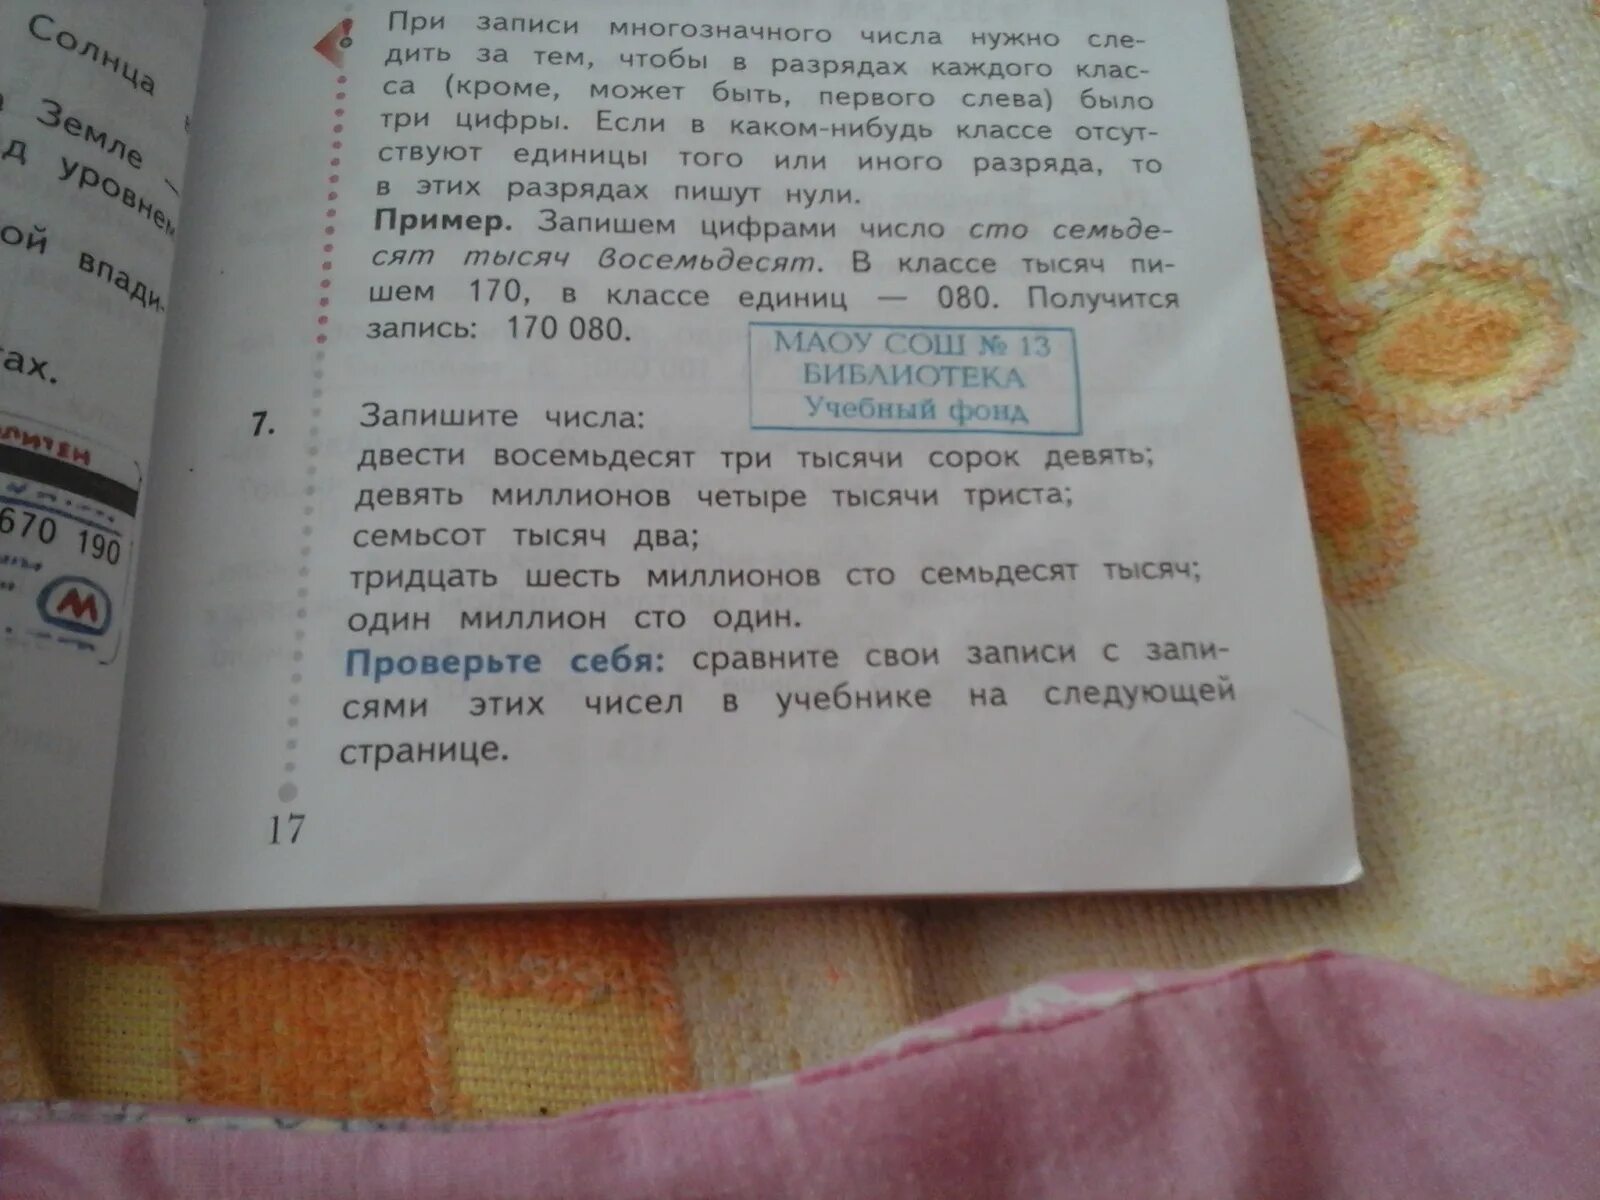 Солнца
Земле —
д уровнем
ой впади-
тах.
670 190
М
При записи многозначного числа нужно сле-
дить за тем, чтобы в разрядах каждого клас-
са (кроме, может быть, первого слева) было
три цифры. Если в каком-нибудь классе отсут-
ствуют единицы того или иного разряда, то
в этих разрядах пишут нули.
Пример. Запишем цифрами число сто семьде-
сят тысяч восемьдесят. В классе тысяч пи-
шем 170, в классе единиц — 080. Получится
запись: 170 080.
МАОУ СОШ № 13
БИБЛИОТЕКА
Учебный фонд
7. Запишите числа:
двести восемьдесят три тысячи сорок девять;
девять миллионов четыре тысячи триста;
семьсот тысяч два;
тридцать шесть миллионов сто семьдесят тысяч;
один миллион сто один.
Проверьте себя: сравните свои записи с запи-
сями этих чисел в учебнике на следующей
странице.
17